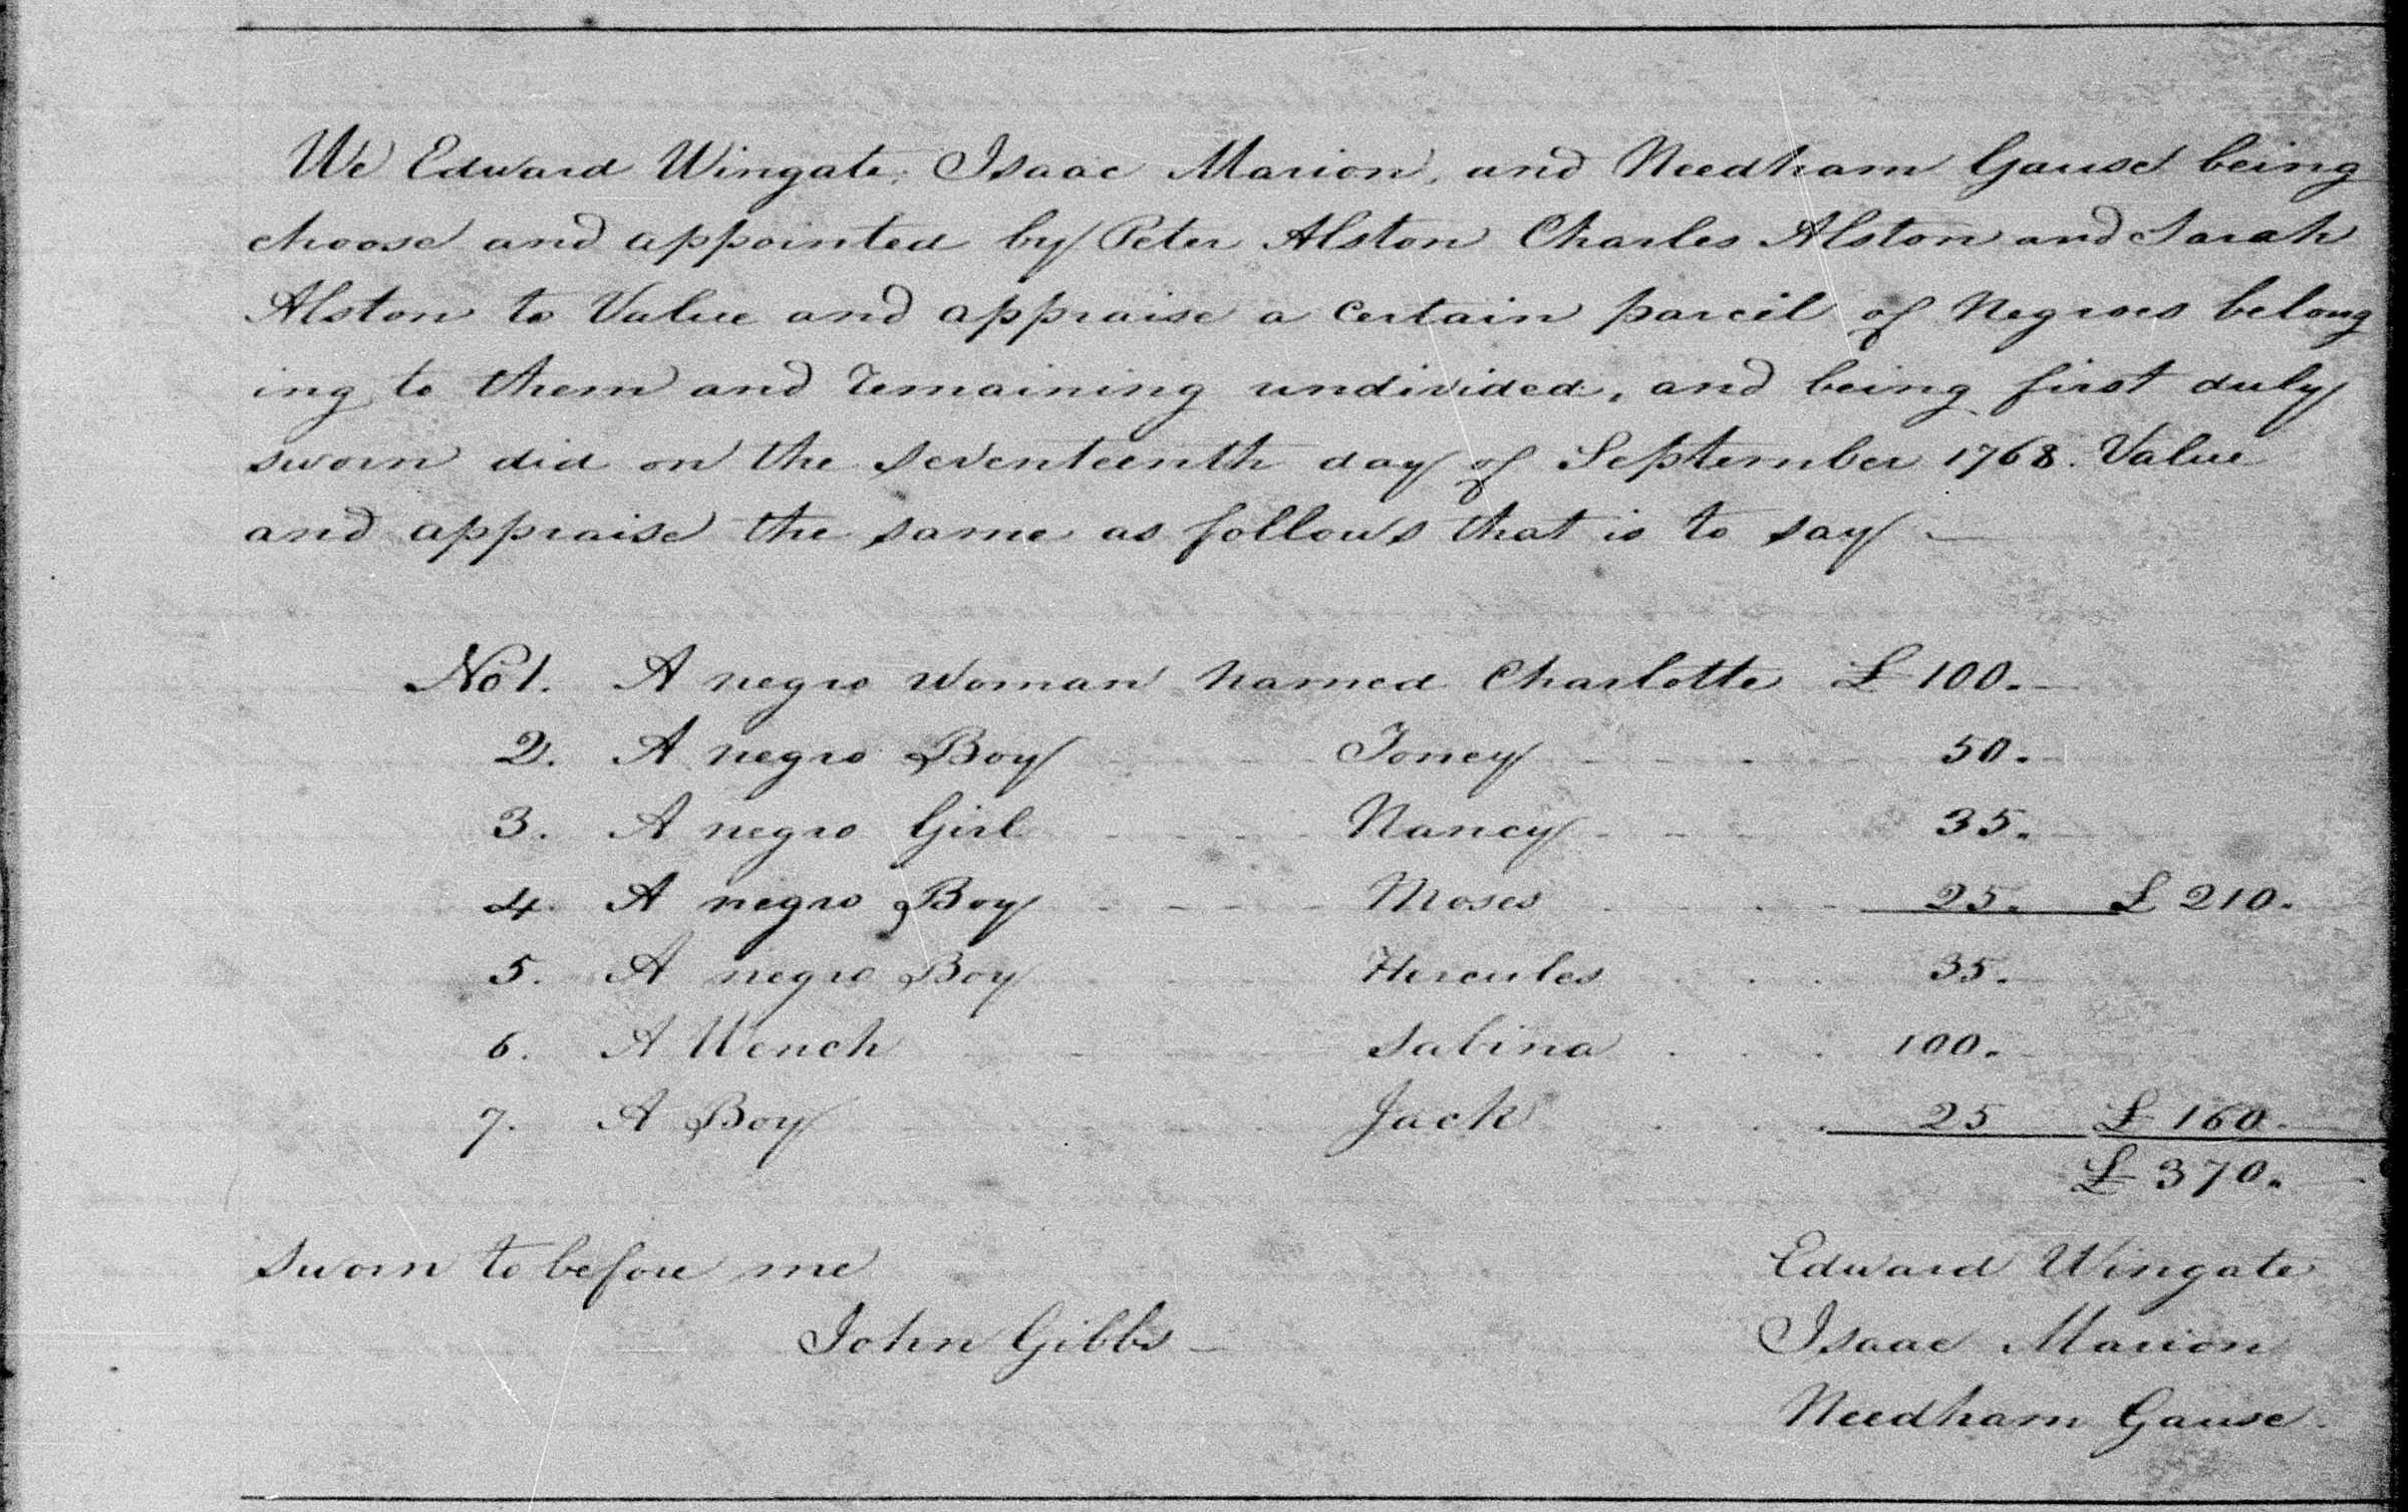 We Edward Wingate, Isaac Marion, and Needham Gause being
choose and appointed by Peter Alston Charles Alston and Sarah
Alston to Value and appraise a certain parcel of Negroes belong
ing to them and remaining undivided, and being first duly
sworn did on the seventeenth day of September 1768. Value
and appraise the same as follows that is to say —
No 1. A negro woman named Charlotte £ 100. —
2. A negro Boy Toney 50. —
3. A negro Girl Nancy 35. —
4. A negro Boy Moses 25. £ 210.
5. A negro Boy Hercules 35. —
6. A Wench Sabina 100. —
7. A Boy Jack 25 £ 160. —
£ 370. —
Sworn to before me Edward Wingate
John Gibbs — Isaac Marion
Needham Gause.